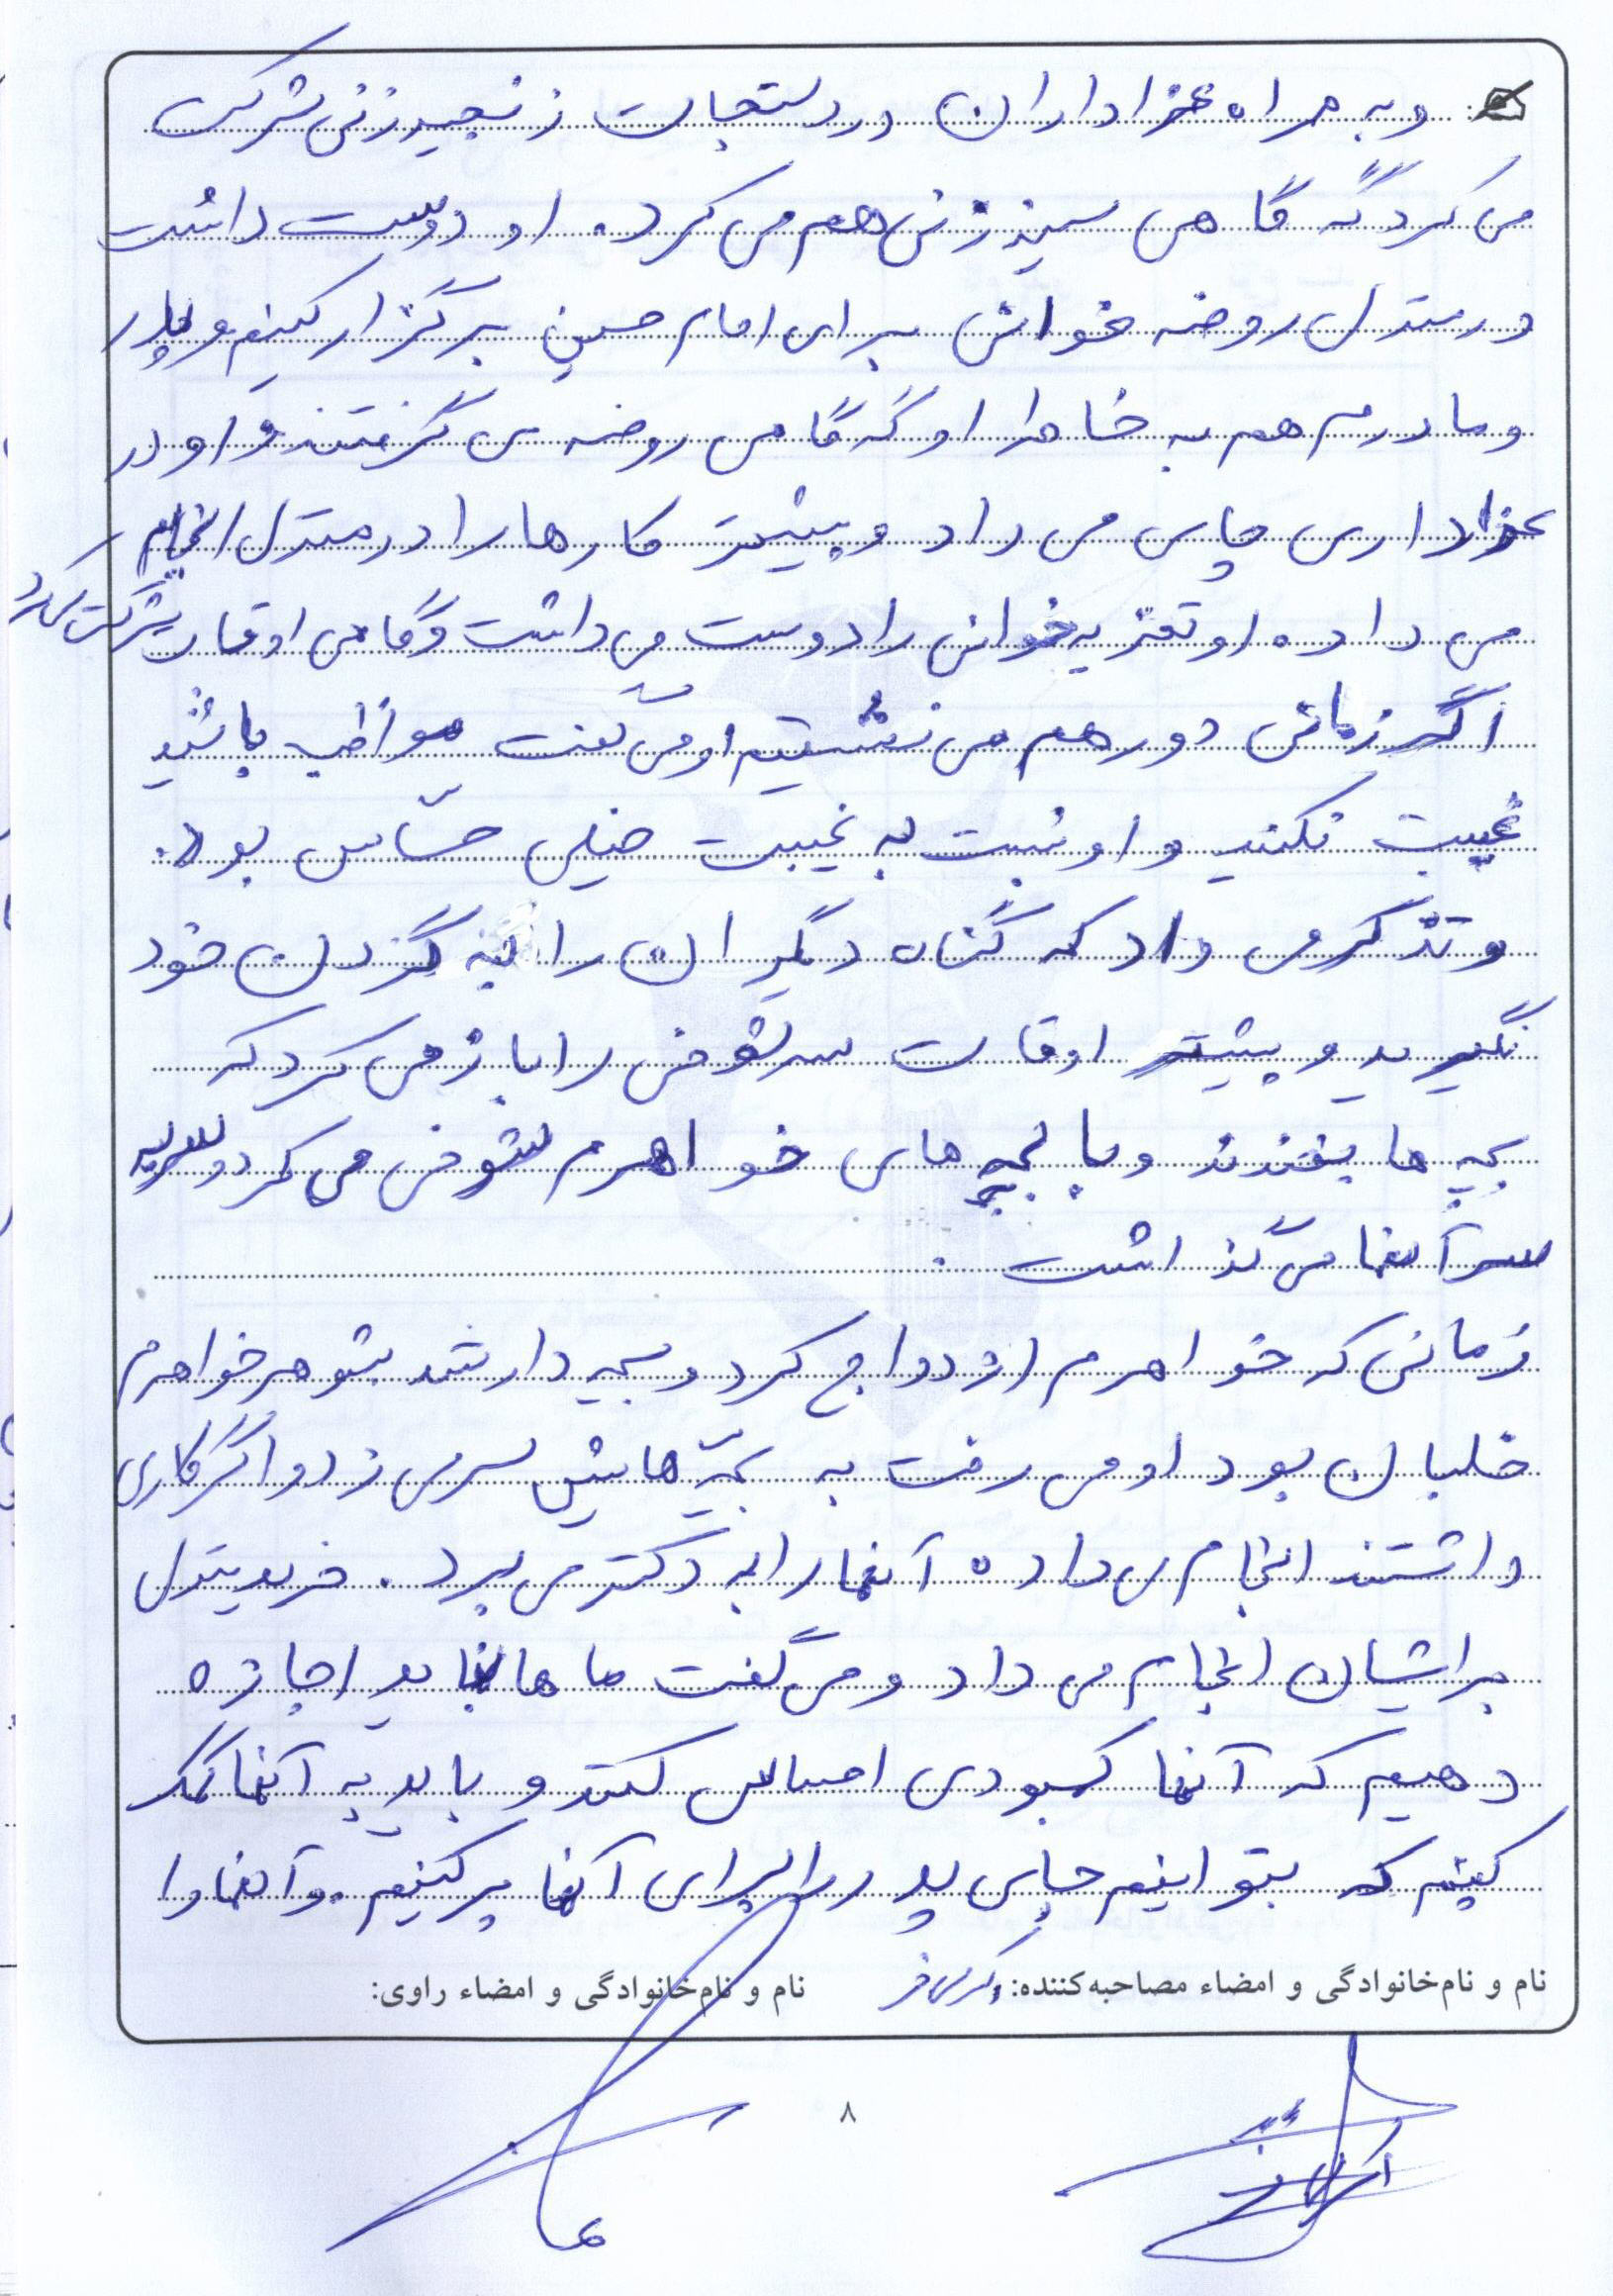 و به همراه عزاداران در دستجات زنجیرزنی شرکت
می کرد گه گاهی سینه زنی هم می کرد. او دوست داشت
در منزل روضه خوانی برای امام حسین برگزار کنیم و پدر
و مادرم هم به خاطر او گه گاهی روضه می گرفتند و او در
عزاداری چای می داد و بیشتر کارها را در منزل انجام
می داد، او تعزیه خوانی را دوست می داشت و گاهی اوقات شرکت می کرد
اگر زمانی دور هم می نشستیم او می گفت مواظب باشید
غیبت نکنید و او نسبت به غیبت خیلی حسّاس بود.
و تذکر می داد که گناه دیگران را به گردن خود
نگیرید و بیشتر اوقات سر شوخی را باز می کرد که
بچه ها بخندند و با بچه های خواهرم شوخی می کرد و سر به
سر آنها می گذاشت.
زمانی که خواهرم ازدواج کرد و بچه دار شد شوهر خواهرم
خلبان بود او می رفت به بچّه هایش سر می زد و اگر کاری
داشتند انجام می داد، آنها را به دکتر می برد. خرید منزل
برایشان انجام می داد و می گفت ماها نباید اجازه
دهیم که آنها کمبودی احساس کنند و باید به آنها کمک
کنیم که بتوانیم جای پدر را برای آنها پر کنیم. و آنها را
نام و نام‌خانوادگی و امضاء مصاحبه‌کننده:
نام و نام‌خانوادگی و امضاء راوی:
۸